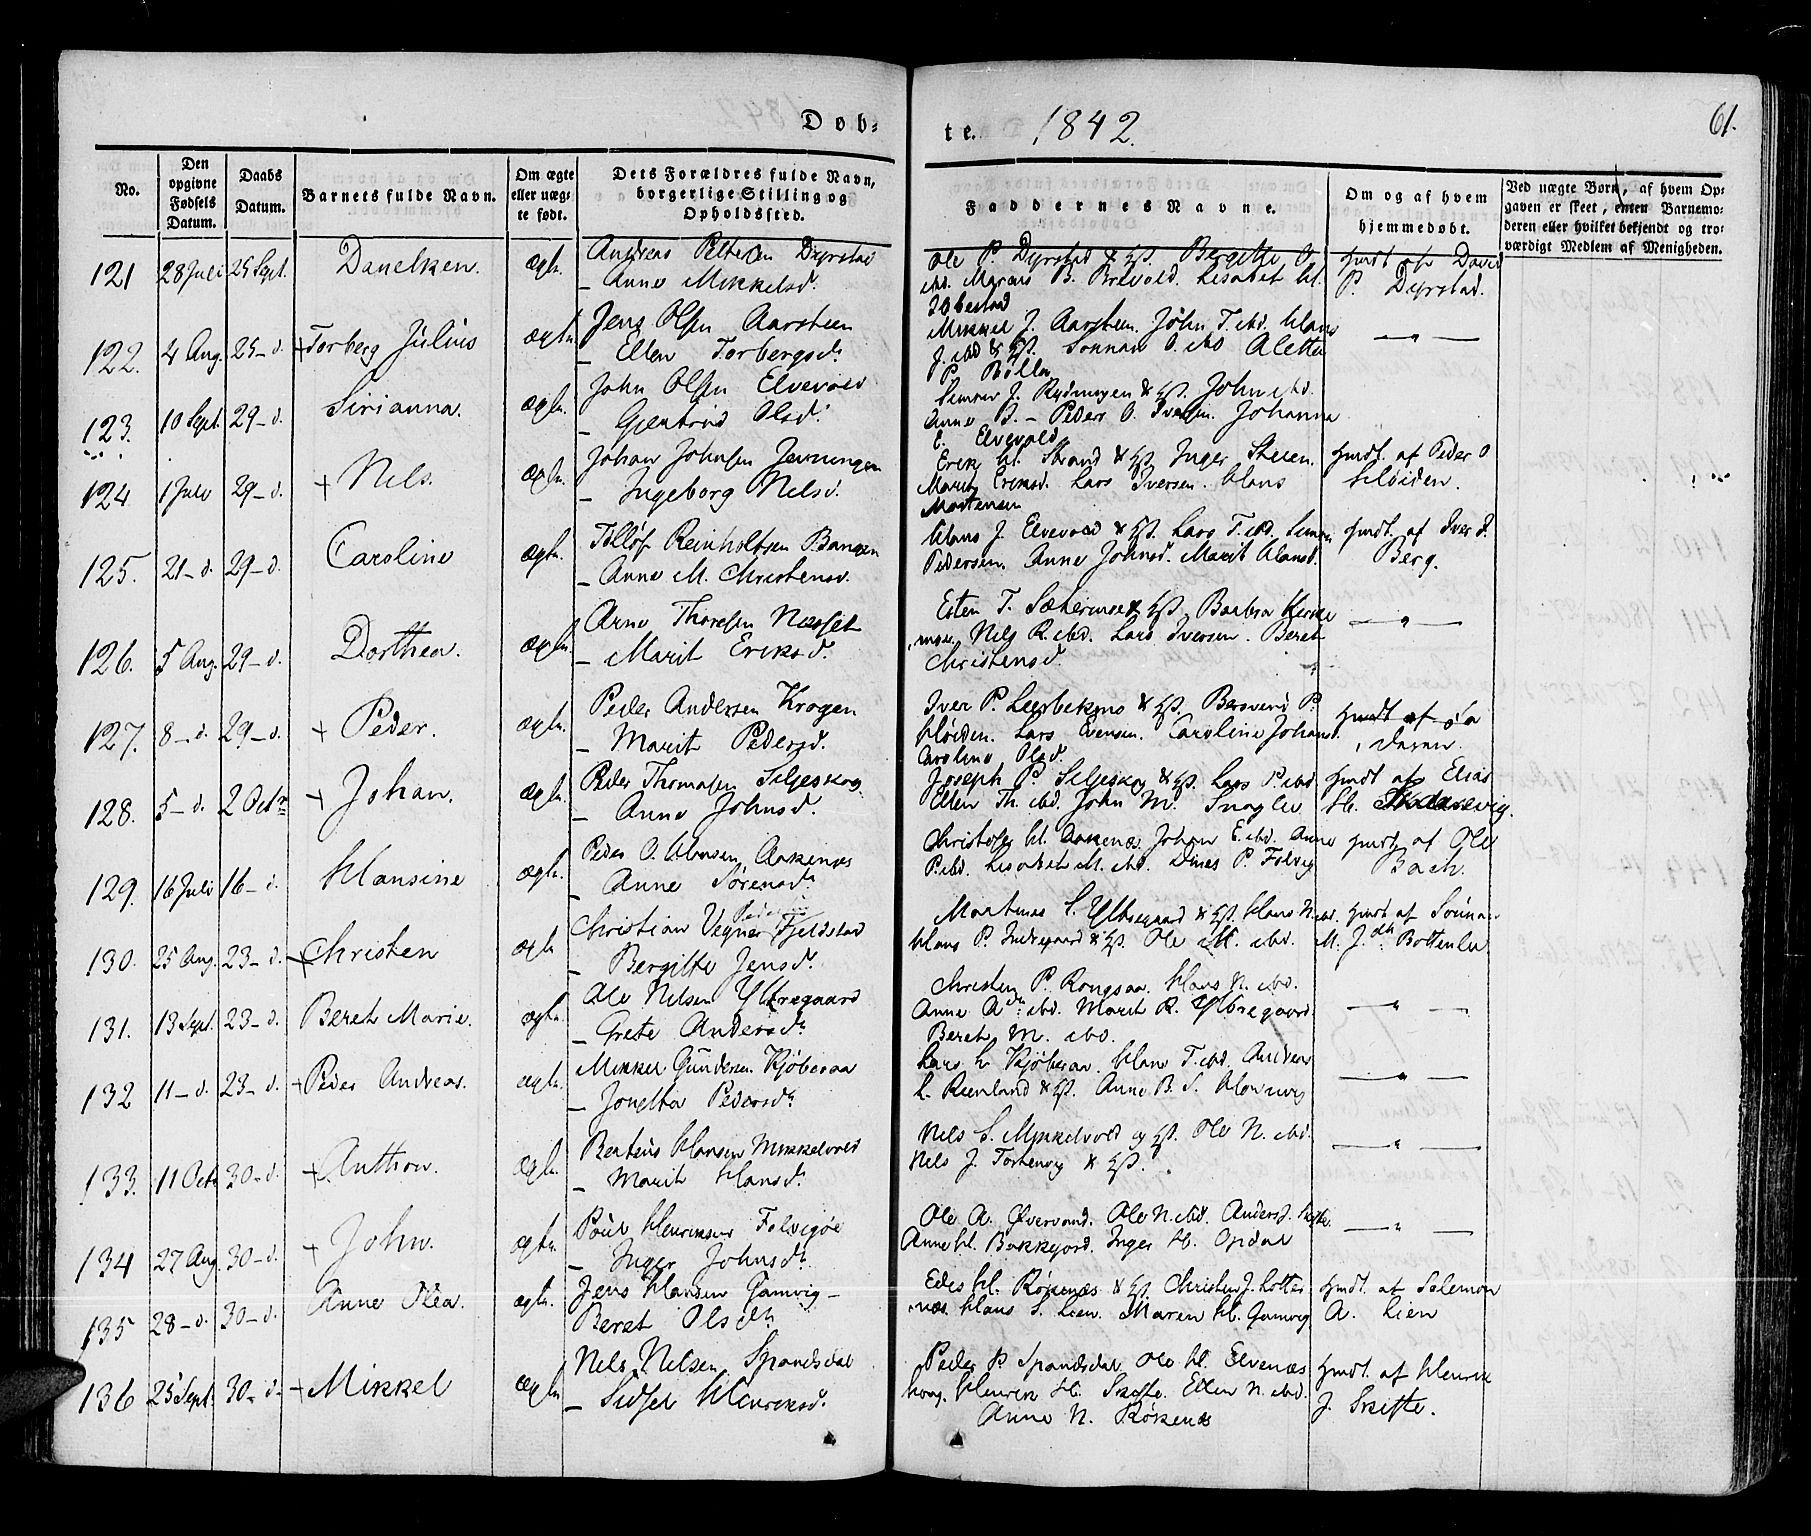 Døb=
te. 1842. 61.
No.
Den opgivne Fødsels Datum.
Daabs Datum.
Barnets fulde Navn.
Om ægte eller uægte født.
Dets Forældres fulde Navn, borgerlige Stilling og Opholdssted.
Faddernes Navne.
Om og af hvem hjemmedøbt.
Ved uægte Børn, af hvem Opgaven er skeet, enten Barnemoderen eller hvilket bekjendt og troværdigt Medlem af Menigheden.
121 28 Juli 25 Sept. Danelken. ægte. Andreas Dyrstad
– Anne Mikkelsd.
Ole P. Dyrstad & Hst. Bergitte O.
ibd. Marcus B. Brevold. Lisabet H.
Ibbestad
hmdt af David
P. Dyrstad.
122. 4 Aug. 25 – d. + Torberg Julius ægte Jens Olsen Aarsteen
– Ellen Torbergsdr
Mikkel J. Aarsteen. John T. ibd. Hans
J. ibd & Hst. O. ibd Aletta
P. Bølla
– " –
123. 10 Sept. 29 – d. Sirianna. ægte. John Olsen Elvevold
– Gjertrud Olsd.
Simon J. & Hst. John ibd.
Anne B. – Peder O. Iversen. Johanna
E. Elvevold
124 1 Juli 29 – d. + Nels. ægte. Johan Johnsen
– Ingeborg Nelsd.
Erik H. Strand & Hst. Inger Steen.
Marit Eriksd. Lars Iversen. Hans
Mortensen
hmdt. af Peder O
Høiden.
125. 21 – d. 29 – d. Caroline ægte. Tollöf Reinholtsen Bangen
– Anne M. Christensd.
Hans J. Elvevold & Hst. Lars T. ibd. Simon
Pedersen. Anne Johnsd. Marit Hansd.
hmdt. af Iver J.
Berg.
126. 5 Aug. 29 – d. Dorthea. ægte. Arne Thoresen Nesset
– Marit Eriksd.
Esten T. & Hst. Barbra Kirke
moe. Nils R. ibd. Lars Iversen. Beret
Christensd.
– " –
127. 8 – d. 29 – d. + Peder. ægte. Peder Andersen Krogen
– Marit Pedersd.
Iver P. & Hst. Bersvend P.
Høiden. Lars Evensen. Caroline Johansd.
Caroline Olsd.
hmdt af
128. 5 – d. 2 Octr + Johan. ægte. Peder Thomasen Seljeskog
– Anne Johnsd.
Joseph P. Seljeskog & Hst. Lars P. ibd
Ellen Th. ibd. John M.
hmdt af Elias
H.
129. 16 Juli 16 – d. Hansine ægte. Peder O. Hansen Aakenæs
– Anne Sørensdr
Christofer H. Aakenæs Johan E. ibd. Anne
P. ibd. Lisabet M. ibd. Dines P. Folvig
hmdt af Ole
Bach.
130. 25 Aug. 23 – d. + Christen ægte Christian Vegner Fjeldstad
– Bergitte Jensdr
Martinus S. Yttregaard & Hst. Hans N. ibd.
Hans P. Indregaard & Hst. Ole M. ibd.
hmdt af
M. J.dtr Bottenlu
131. 13 Sept. 23 – d. Beret Marie. ægte. Ole Nelsen Yttregaard
– Grete Andersdr
Christen P. Rongsaa. Hans N. ibd.
Anne A.dtr ibd. Marit R. Yttregaard
Beret M. ibd.
– " –
132 11 – d. 23 – d. + Peder Andreas. ægte. Mikkel Gundersen Kjøberaa
– Jonetta Pedersdr
Lars L. Kjøberaa. Hans T. ibd. Andreas
L. Reenland & Hst. Anne B. S.
– " –
133. 11 Octr 30 – d. + Anthon. ægte. Berteus Hansen Mikkelvold
– Marit Hansdr
Nels S. Mikkelvold og Hst. Ole N. ibd.
Nels J. & Hst.
– " –
134 27 Aug. 30 – d. + John. ægte. Poul Henriksen
– Inger Johnsdr
Ole A. Øvervand. Ole N. ibd. Anders J.
Anne H. Bakkejord. Inger H. Opdal
– " –
135 28 – d. 30 – d. Anne Olea. ægte. Jens Hansen Gamvig –
Beret Olsdr
Edes H. Røkenæs & Hst. Christen J. Lotte
næs. Hans S. Lien. Maren H. Gamvig.
hmdt. af Salemon
A. Lien
136 25 Sept. 30 – d. + Mikkel ægte Nels Nelsen Spandsdal
– Sidsel Henriksd.
Peder P. Spandsdal. Ole H. Elvenæs
houg. Henrik H. Skifte. Ellen N. ibd.
Anne N. Røkenæs
hmdt. af Henrik
J. Skifte.